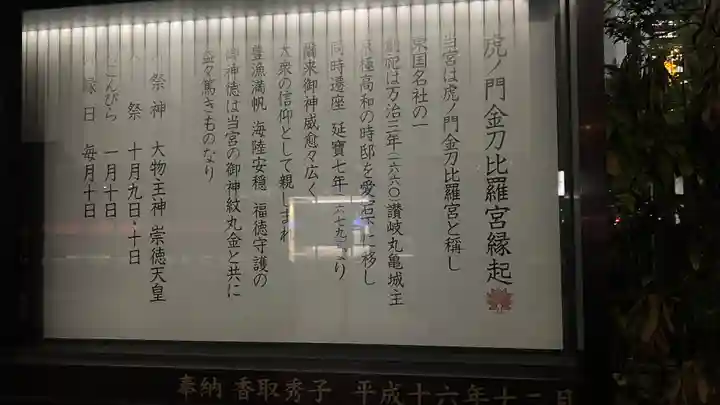 虎ノ門金刀比羅宮縁起
当宮は虎ノ門金刀比羅宮と稱し
東国名社の一
創祀は万治三年(一六六〇)讃岐丸亀城主
京極高和の時邸を愛宕下に移し
同時遷座 延寶七年(一六七九)
爾来御神威愈々広く
大衆の信仰として親しまれ
豊漁満帆 海陸安穏 福徳守護の
御神徳は当宮の御神紋丸金と共に
益々篤きものなり
祭神 大物主神 崇徳天皇
祭 十月九日・十日
こんぴら 一月十日
縁日 毎月十日
奉納 香取秀子 平成十六年十二月